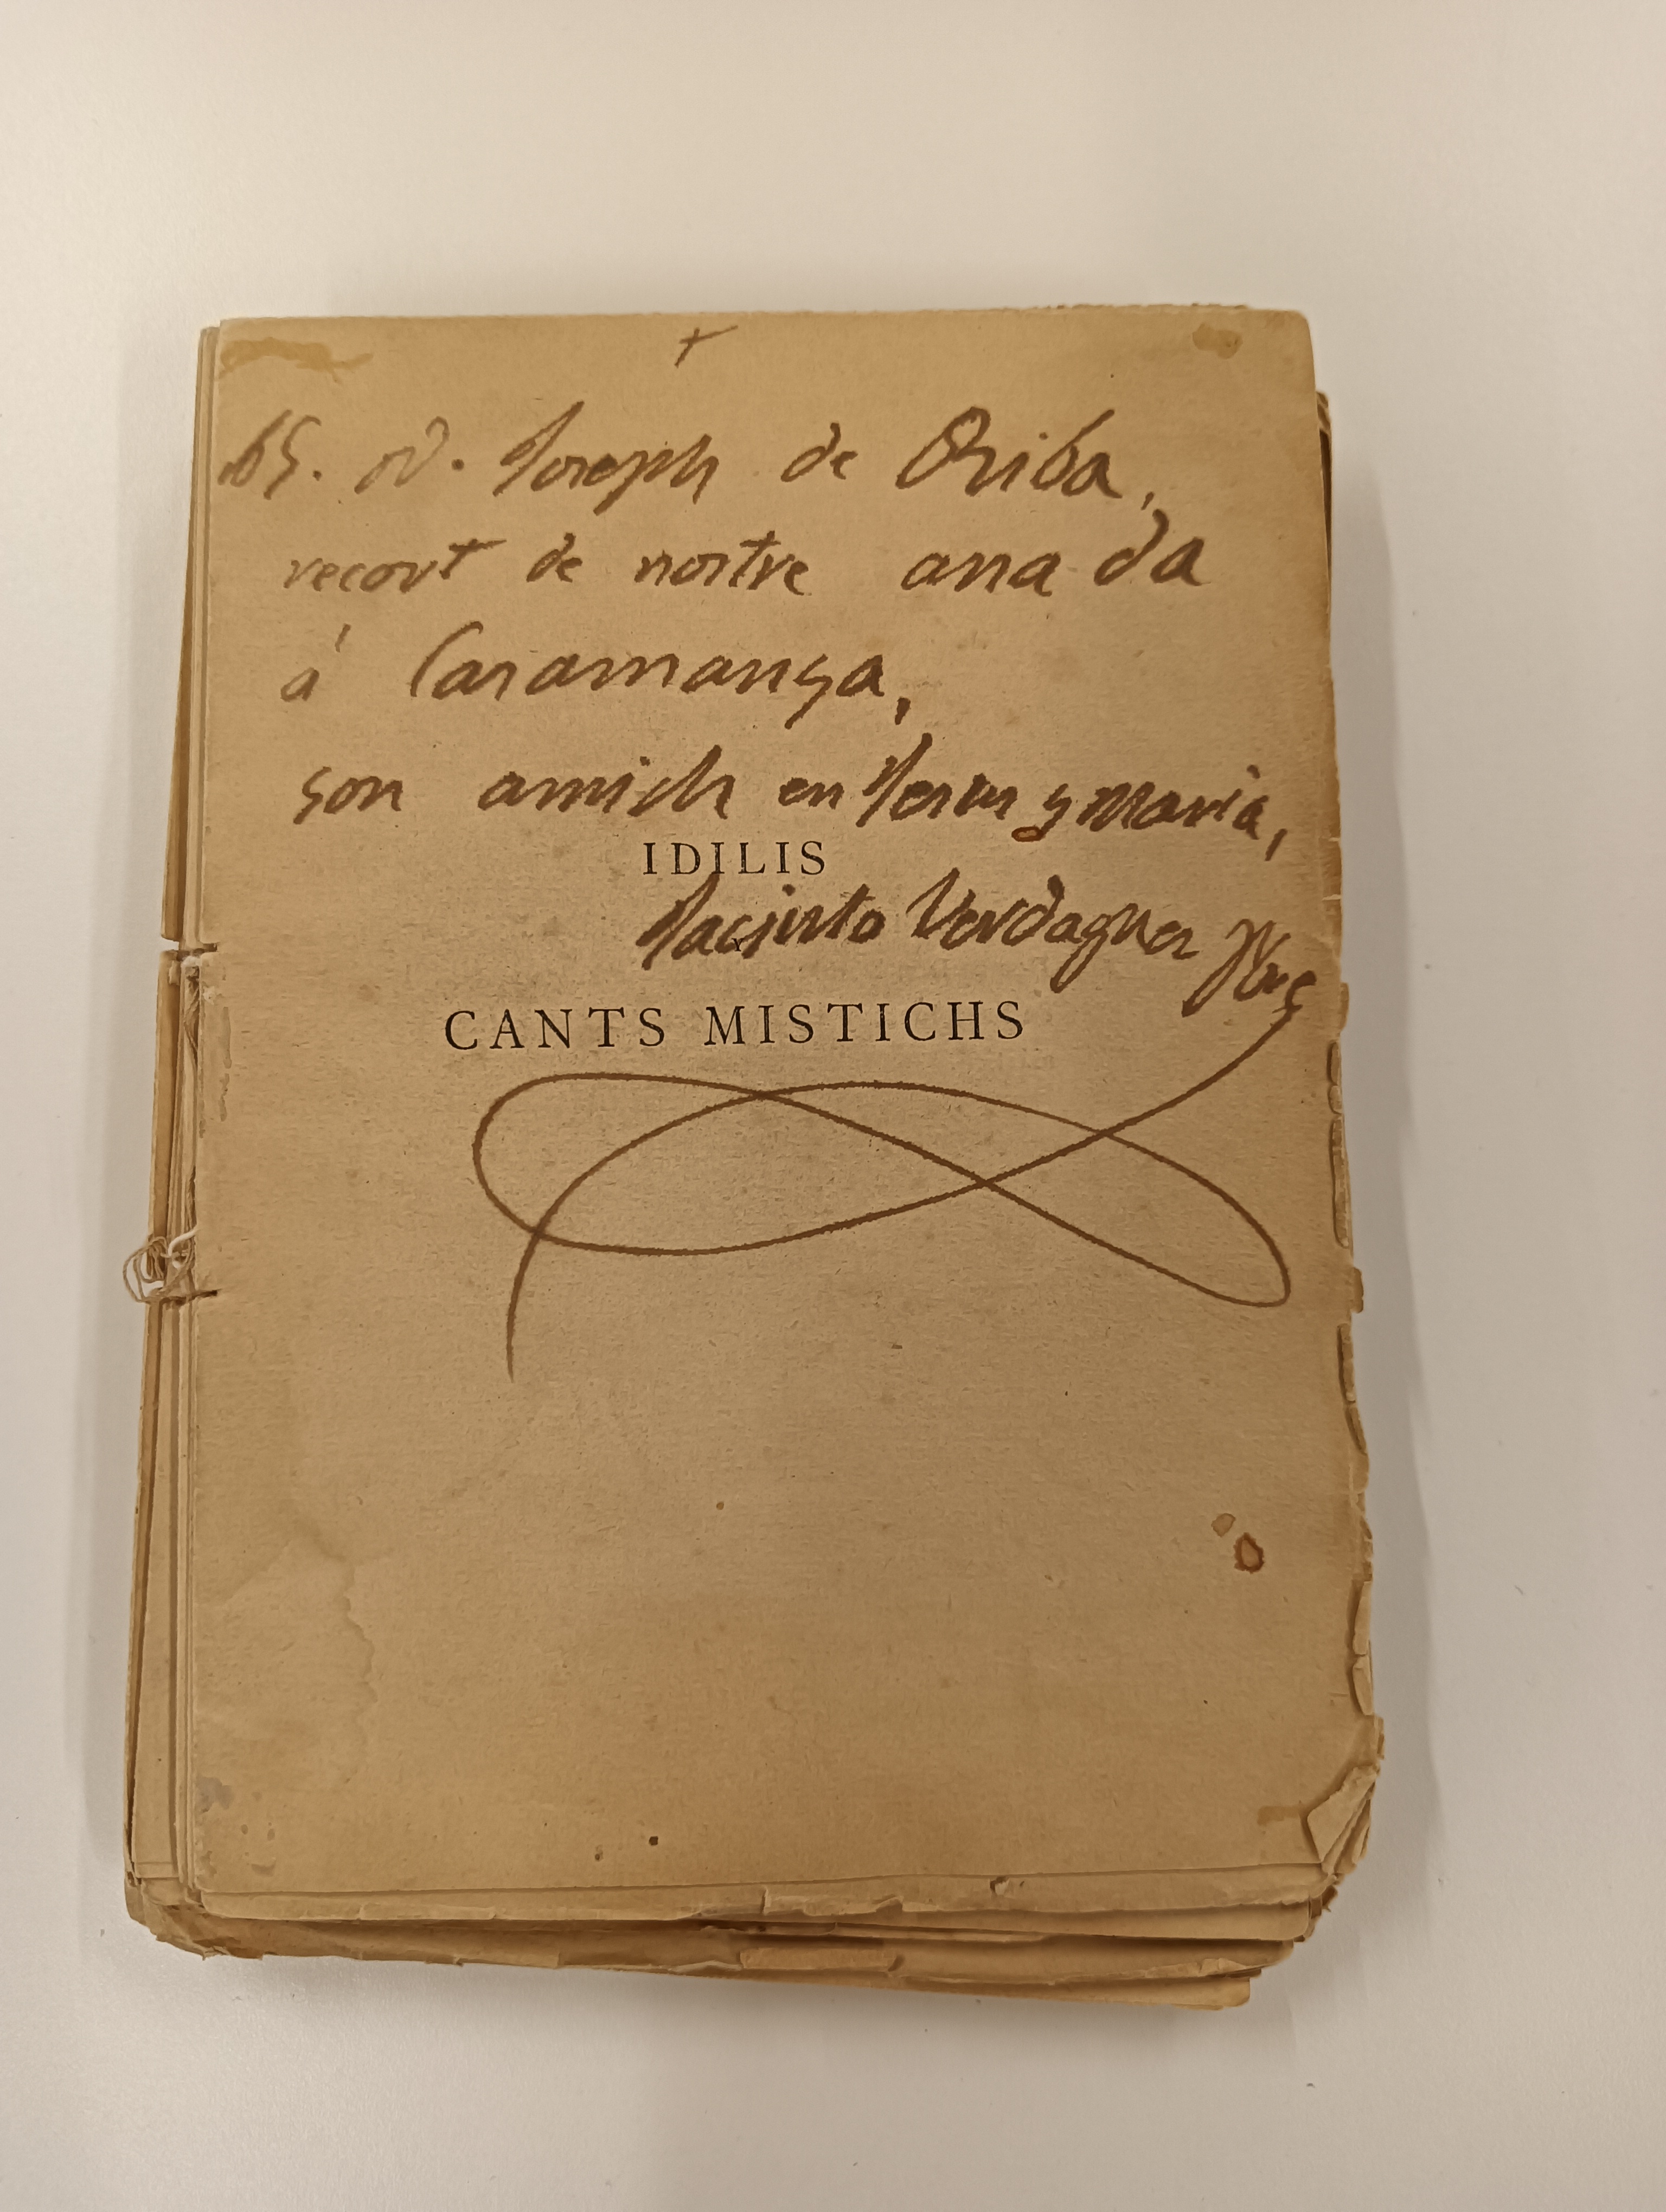 +
D. Joseph de Oriba,
recort de nostre anada
á Caramansa,
son amich en Jesus y Maria,
IDILIS
Jacinto Verdaguer Pbre
Y
CANTS MISTICHS